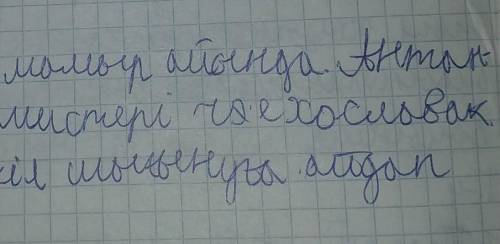 мамыр айында. Антан-
мистері чехословак.
іл шығынуға айдап